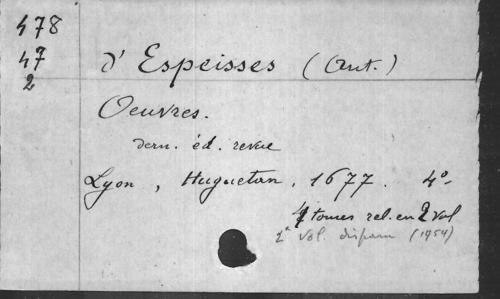 478
47
2
d'Espeisses (Ant.)
Oeuvres.
dern. éd. revue
Lyon, Huguetan, 1677. 4°
4 tomes rel. en 2 vol
2e vol. disparu (1954)